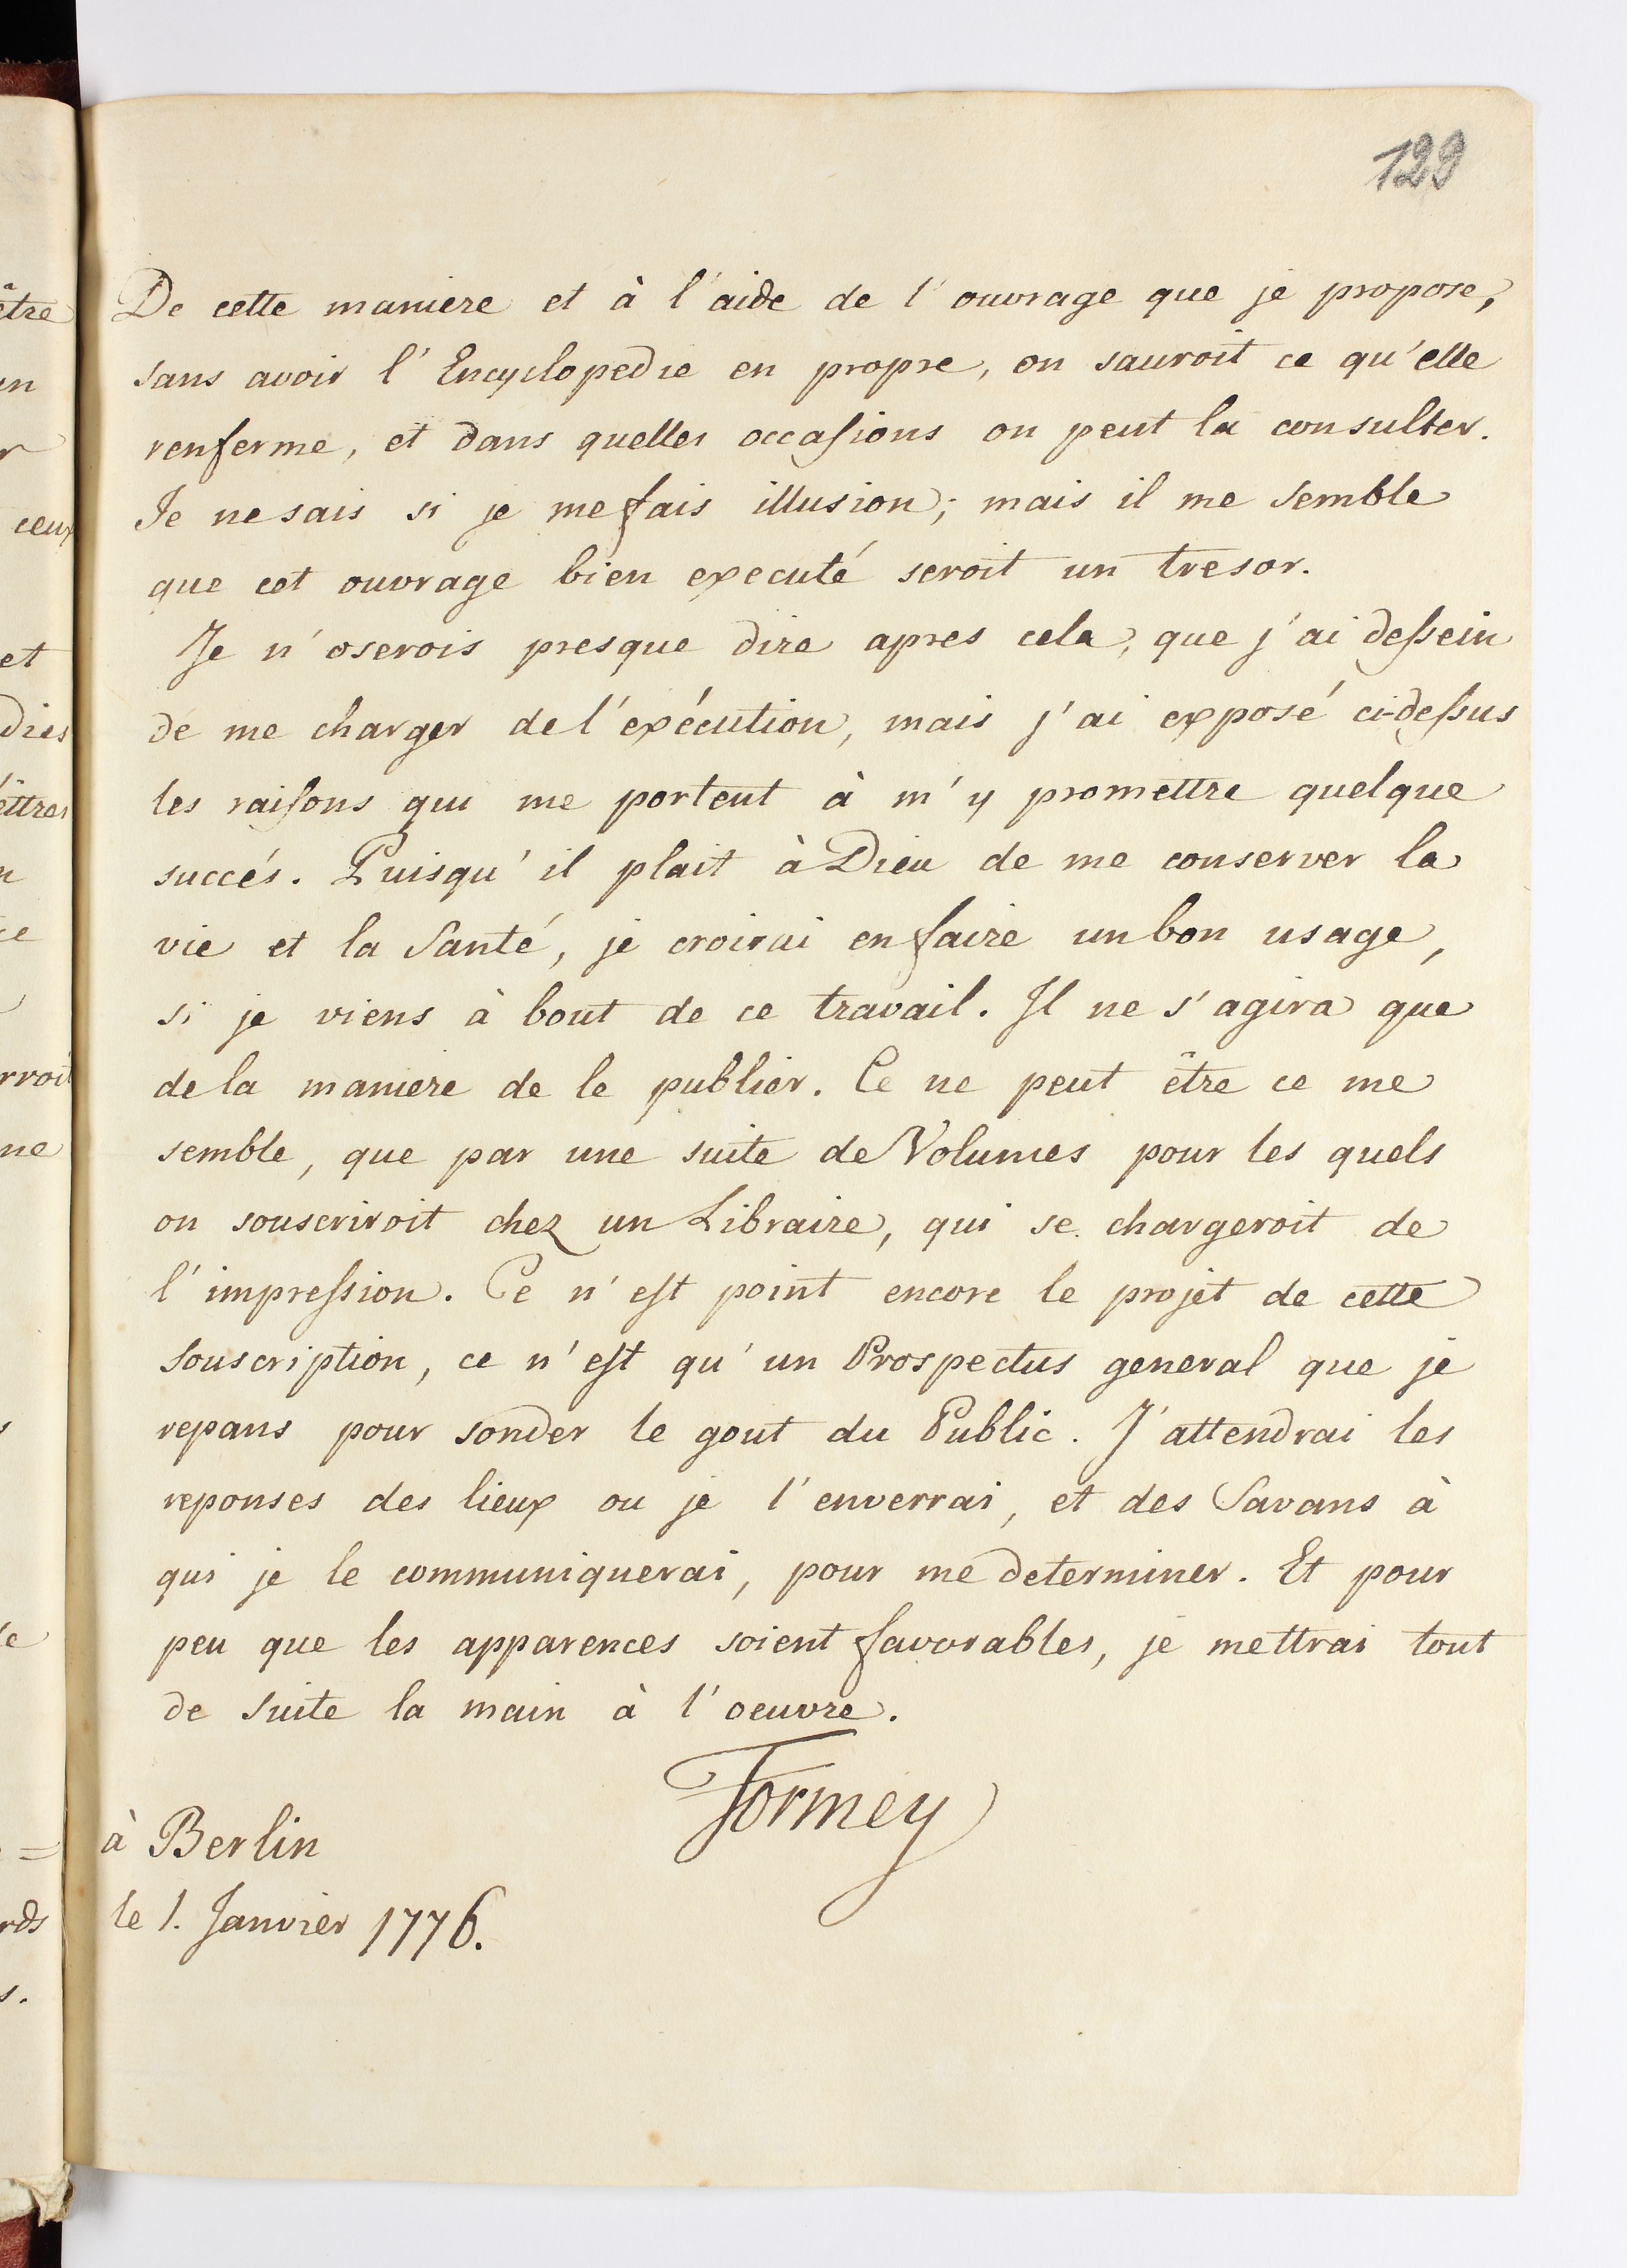 129
De cette maniere et à l'aide de l'ouvrage que je propose,
sans avoir l'Encyclopedie en propre, on sauroit ce qu'elle
renferme, et dans quelles occaſions on peut la consulter.
Je ne sais si je me fais illusion; mais il me semble
que cet ouvrage bien executé seroit un tresor.
Je n'oserois presque dire apres cela, que j'ai deſsein
de me charger de l'exécution, mais j'ai exposé ci-deſsus
les raiſons qui me portent à m'y promettre quelque
succés. Puisqu'il plait à Dieu de me conserver la
vie et la Santé, je croirai en faire un bon usage,
si je viens à bout de ce travail. Il ne s'agira que
de la maniere de le publier. Ce ne peut être ce me
semble, que par une suite de Volumes pour les quels
on souscriroit chez un Libraire, qui se chargeroit de
l'impreſsion. Ce n'eſt point encore le projet de cette
souscription, ce n'eſt qu'un Prospectus general que je
repans pour sonder le gout du Public. J'attendrai les
reponses des lieux ou je l'enverrai, et des Savans à
qui je le communiquerai, pour me determiner. Et pour
peu que les apparences soient favorables, je mettrai tout
de suite la main à l'oeuvre.
Formey
à Berlin
le 1. Janvier 1776.